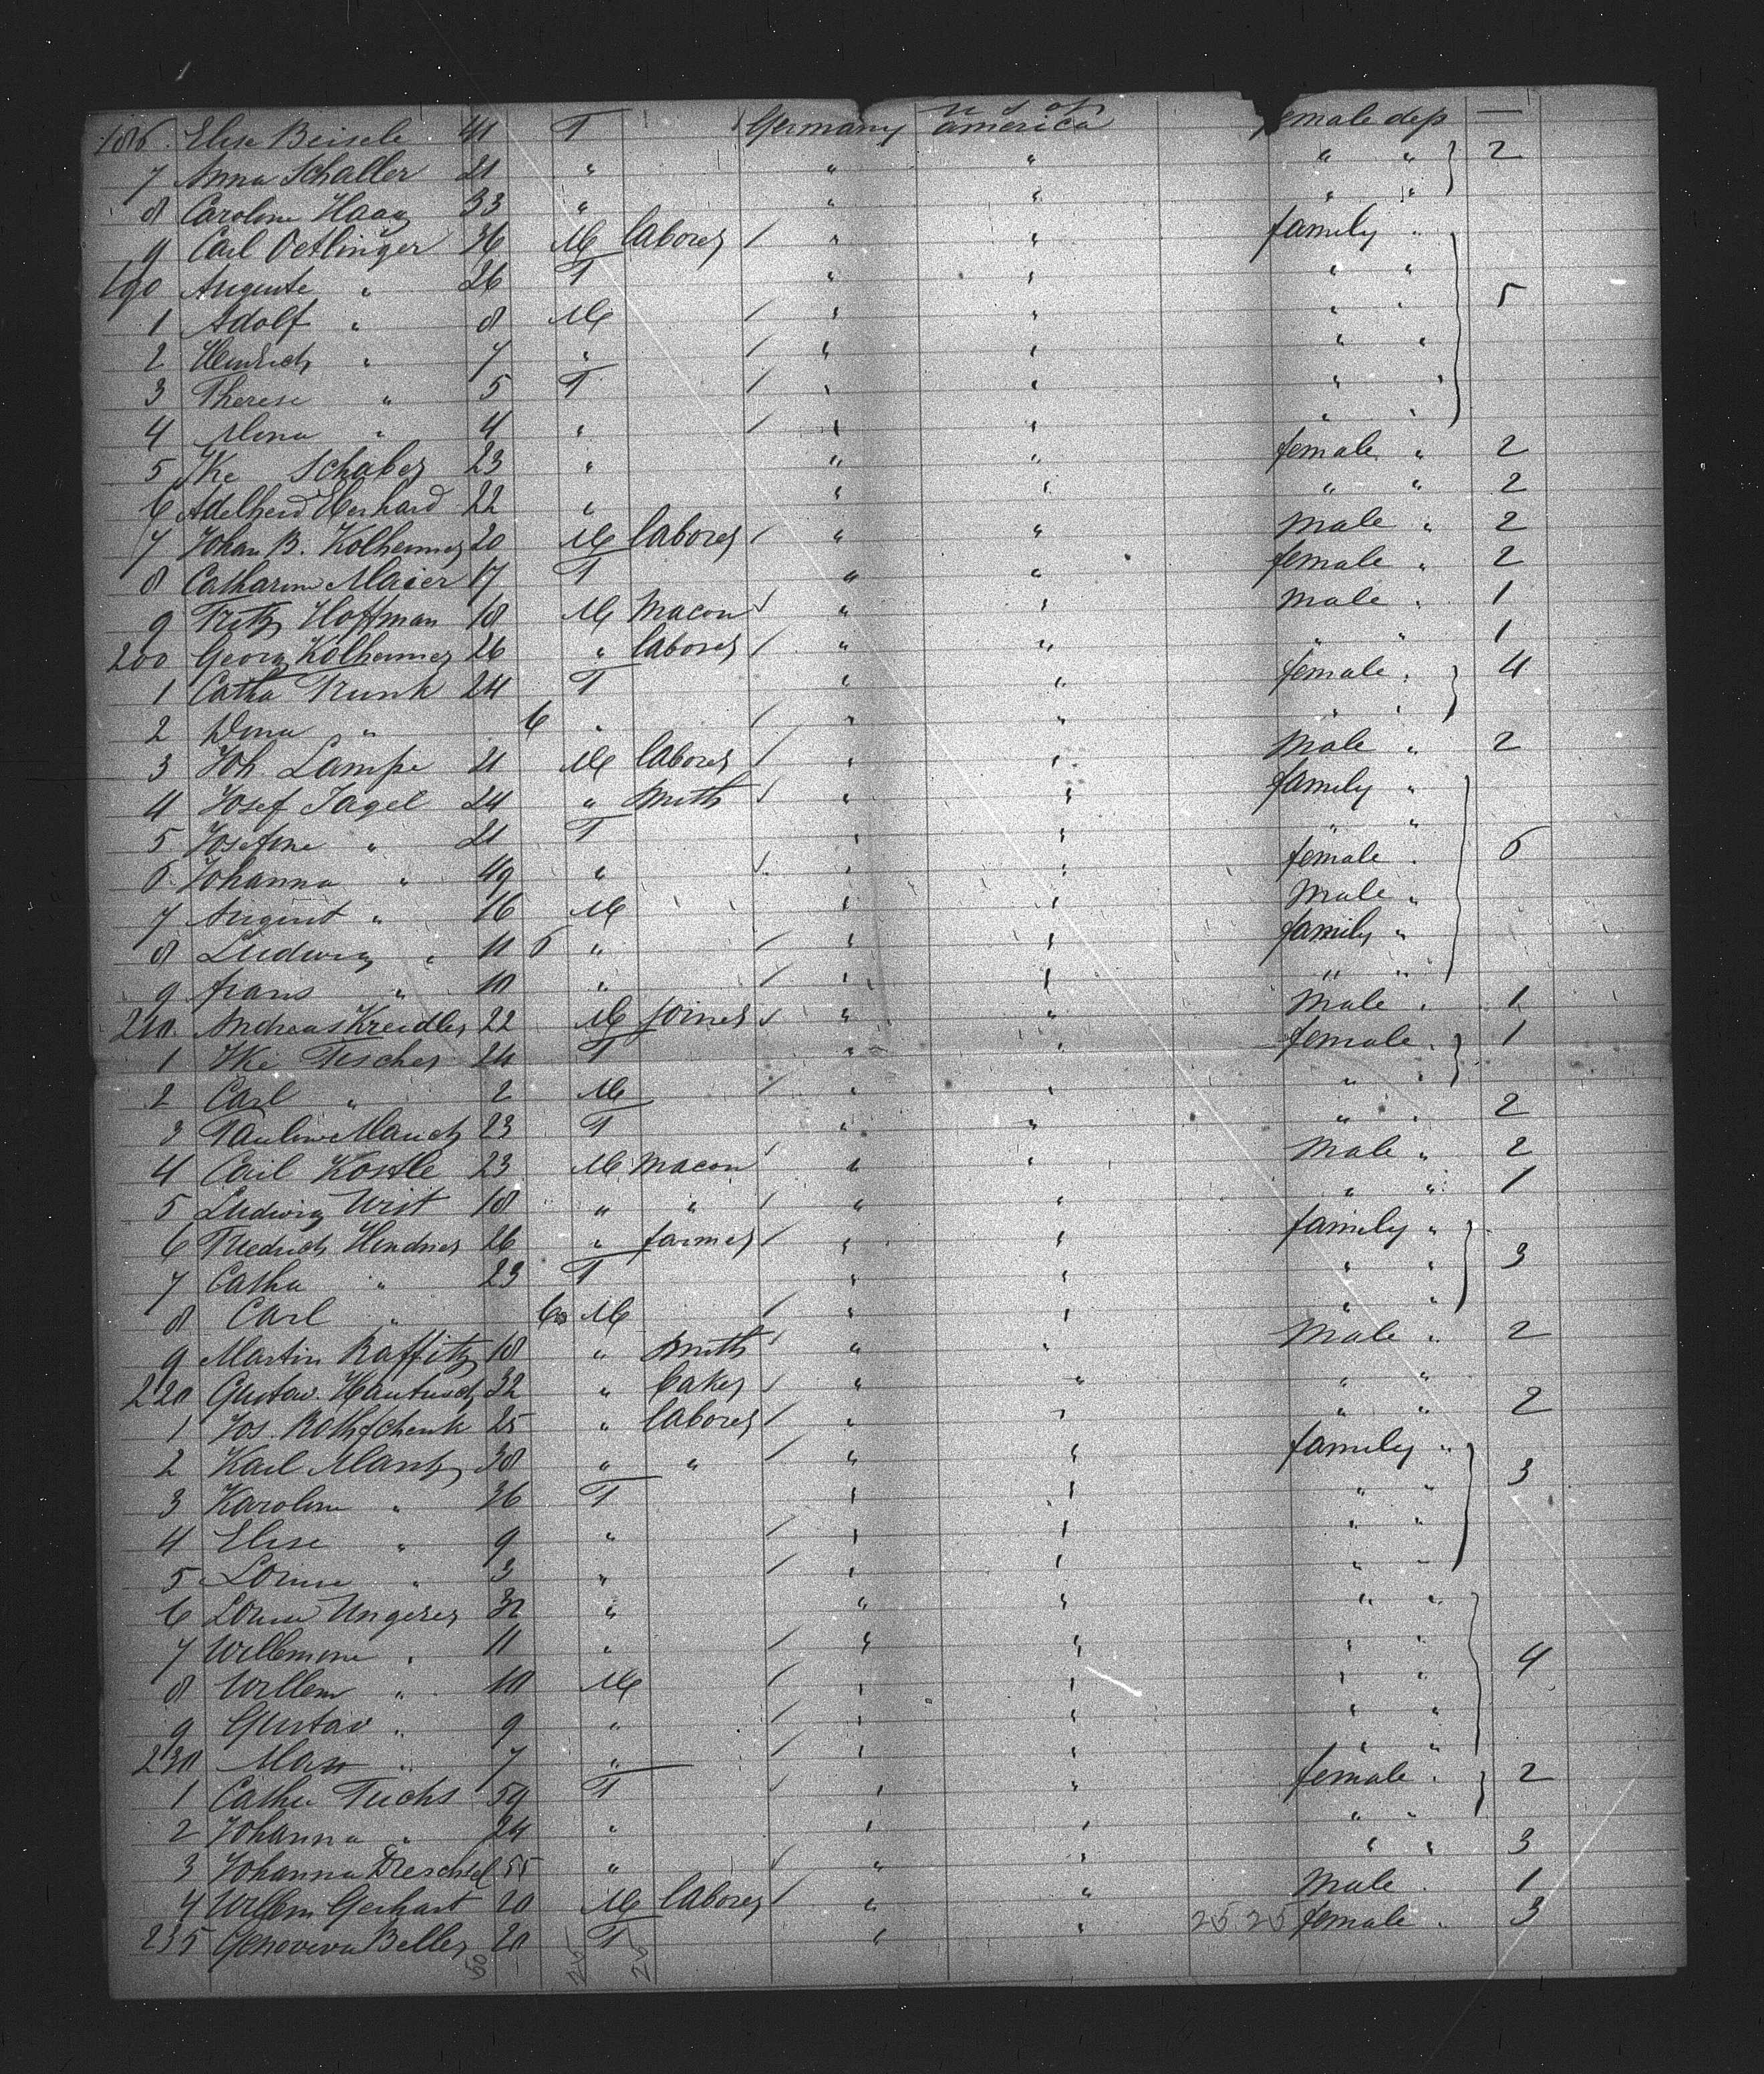 186 Elise Beisele 41 F Germany U S of america female dep —
7 Anna Schaller 21 " " " " " 2
8 Caroline Haag 33 " " " " "
9 Carl Oetlinger 36 M laborer / " " family "
190 Auguste " 26 F " " " "
1 Adolf " 8 M / " " " " 5
2 Heinrich " 7 " / " " " "
3 Therese " 5 F / " " " "
4 Mina " 4 " / " " " "
5 Ike Schaber 23 " " " female " 2
6 Adelheid Eberhard 22 " " " " " 2
7 Johan B. Kolhammer 20 M laborer / " " male " 2
8 Catharine Maier 17 F " " female " 2
9 Fritz Hoffman 18 M macon / " " male " 1
200 Georg Kolhammer 26 " laborer / " " " " 1
1 Catha Trunk 24 F " " female " 4
2 Dina " 6 " / " " " "
3 Joh. Lampe 21 M laborer / " " male " 2
4 Josef Jagel 24 " smith / " " family "
5 Josefine " 21 F " " " "
6 Johanna " 49 " / " " female " 6
7 August " 16 M " " male "
8 Ludwig " 11 6 " / " " family "
9 frans " 10 " / " " " "
210 Andreas Kreidler 22 M joiner / " " male " 1
1 Ike Fischer 24 F " " female " 1
2 Carl " 2 M / " " " "
3 Pauline Mauch 23 F " " " " 2
4 Carl Kostle 23 M macon / " " male " 2
5 Ludwig Wist 18 " " / " " " " 1
6 Friedrich Hendner 26 " farmer / " " family "
7 Catha " 23 F " " " " 3
8 Carl " 6 M / " " " "
9 Martin Raffitz 18 " smith / " " male " 2
220 Gustav. Hautusch 32 " baker / " " " "
1 Jos. Rothschenk 25 " laborer / " " " " 2
2 Karl Mantz 38 " " / " " family "
3 Karoline " 36 F " " " " 3
4 Elise " 9 " / " " " "
5 Louise " 3 " / " " " "
6 Louise Ungerer 32 " " " " "
7 Willemine " 11 " / " " " "
8 Willem " 10 M / " " " " 4
9 Gustav " 9 " / " " " "
230 Max " 7 " / " " " "
1 Catha Fuchs 59 F / " " female " 2
2 Johanna " 24 " " " " "
3 Johanna Dreschsel 55 " / " " " " 3
4 Willem Gerhart 20 M laborer / " " male 1
235 Genoveva Beller 20 F " " 25 25 female " 3
50 25 25